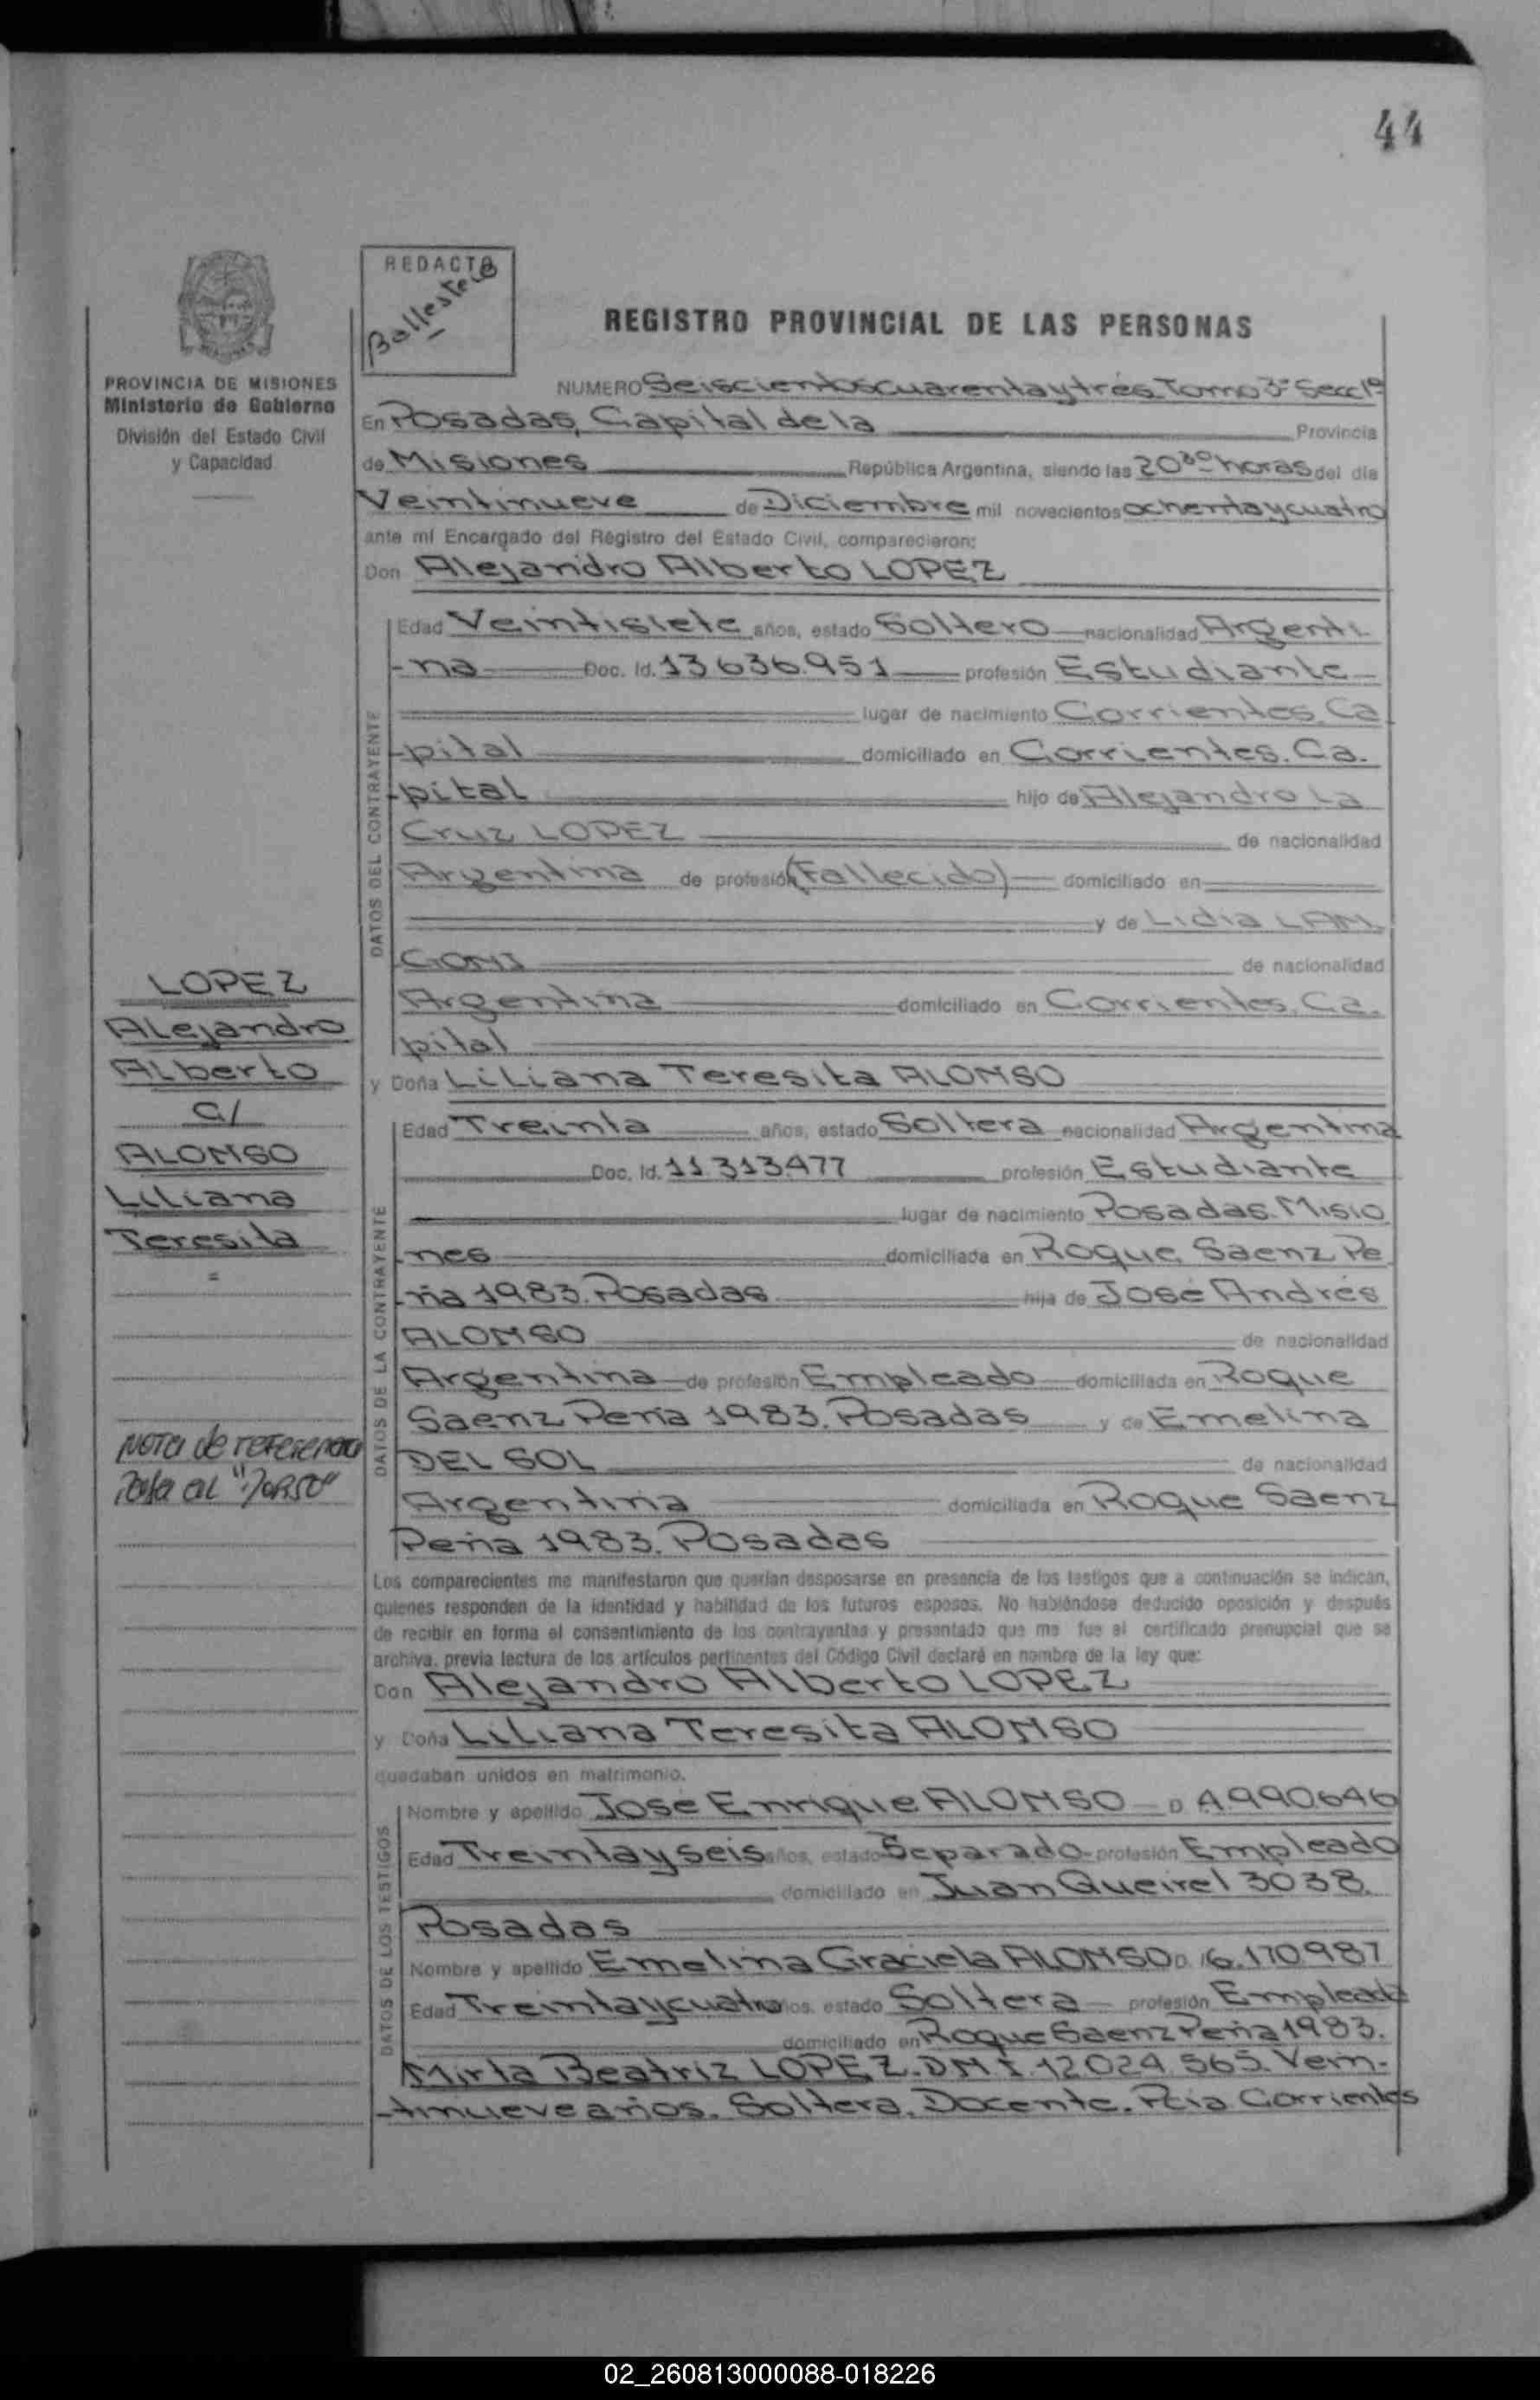 44
REDACTO
Ballestero
REGISTRO PROVINCIAL DE LAS PERSONAS
PROVINCIA DE MISIONES
Ministerio de Gobierno
División del Estado Civil
y Capacidad
NUMERO Seiscientoscuarentaytrés. Tomo 3º Secc 1ª
En Posadas, Capital de la Provincia
de Misiones República Argentina, siendo las 20³⁰ horas del día
Veintinueve de Diciembre mil novecientos ochentaycuatro
ante mí Encargado del Registro del Estado Civil, comparecieron:
Don Alejandro Alberto LOPEZ
DATOS DEL CONTRAYENTE
Edad Veintisiete años, estado Soltero nacionalidad Argenti-
-na Doc. Id. 13.636.951 profesión Estudiante
lugar de nacimiento Corrientes. Ca
-pital domiciliado en Corrientes. Ca.
-pital hijo de Alejandro La
Cruz LOPEZ de nacionalidad
Argentina de profesión (Fallecido) domiciliado en
y de Lidia LAN-
GONI de nacionalidad
Argentina domiciliado en Corrientes. Ca.
pital
y Doña Liliana Teresita ALONSO
LOPEZ
Alejandro
Alberto
c/
ALONSO
Liliana
Teresita
=
Nota de referencia
pasa al "DORSO"
DATOS DE LA CONTRAYENTE
Edad Treinta años, estado Soltera nacionalidad Argentina
Doc. Id. 11.313.477 profesión Estudiante
lugar de nacimiento Posadas. Misio
-nes domiciliada en Roque Saenz Pe
-ña 1983. Posadas hija de José Andrés
ALONSO de nacionalidad
Argentina de profesión Empleado domiciliada en Roque
Saenz Peña 1983. Posadas y de Emelina
DEL SOL de nacionalidad
Argentina domiciliada en Roque Saenz
Peña 1983. Posadas
Los comparecientes me manifestaron que querían desposarse en presencia de los testigos que a continuación se indican,
quienes responden de la identidad y habilidad de los futuros esposos. No habiéndose deducido oposición y después
de recibir en forma el consentimiento de los contrayentes y presentado que me fue el certificado prenupcial que se
archiva, previa lectura de los artículos pertinentes del Código Civil declaré en nombre de la ley que:
Don Alejandro Alberto LOPEZ
y Doña Liliana Teresita ALONSO
quedaban unidos en matrimonio.
DATOS DE LOS TESTIGOS
Nombre y apellido José Enrique ALONSO D. 4.990.646
Edad Treintayseis años, estado Separado profesión Empleado
domiciliado en Juan Queirel 3038.
Posadas
Nombre y apellido Emelina Graciela ALONSO D. 6.170.987
Edad Treintaycuatro años, estado Soltera profesión Empleada
domiciliado en Roque Saenz Peña 1983.
Mirta Beatriz LOPEZ. D.N.I. 12.024.565. Vein-
-tinueve años. Soltera. Docente. Pcia Corrientes
02_260813000088-018226